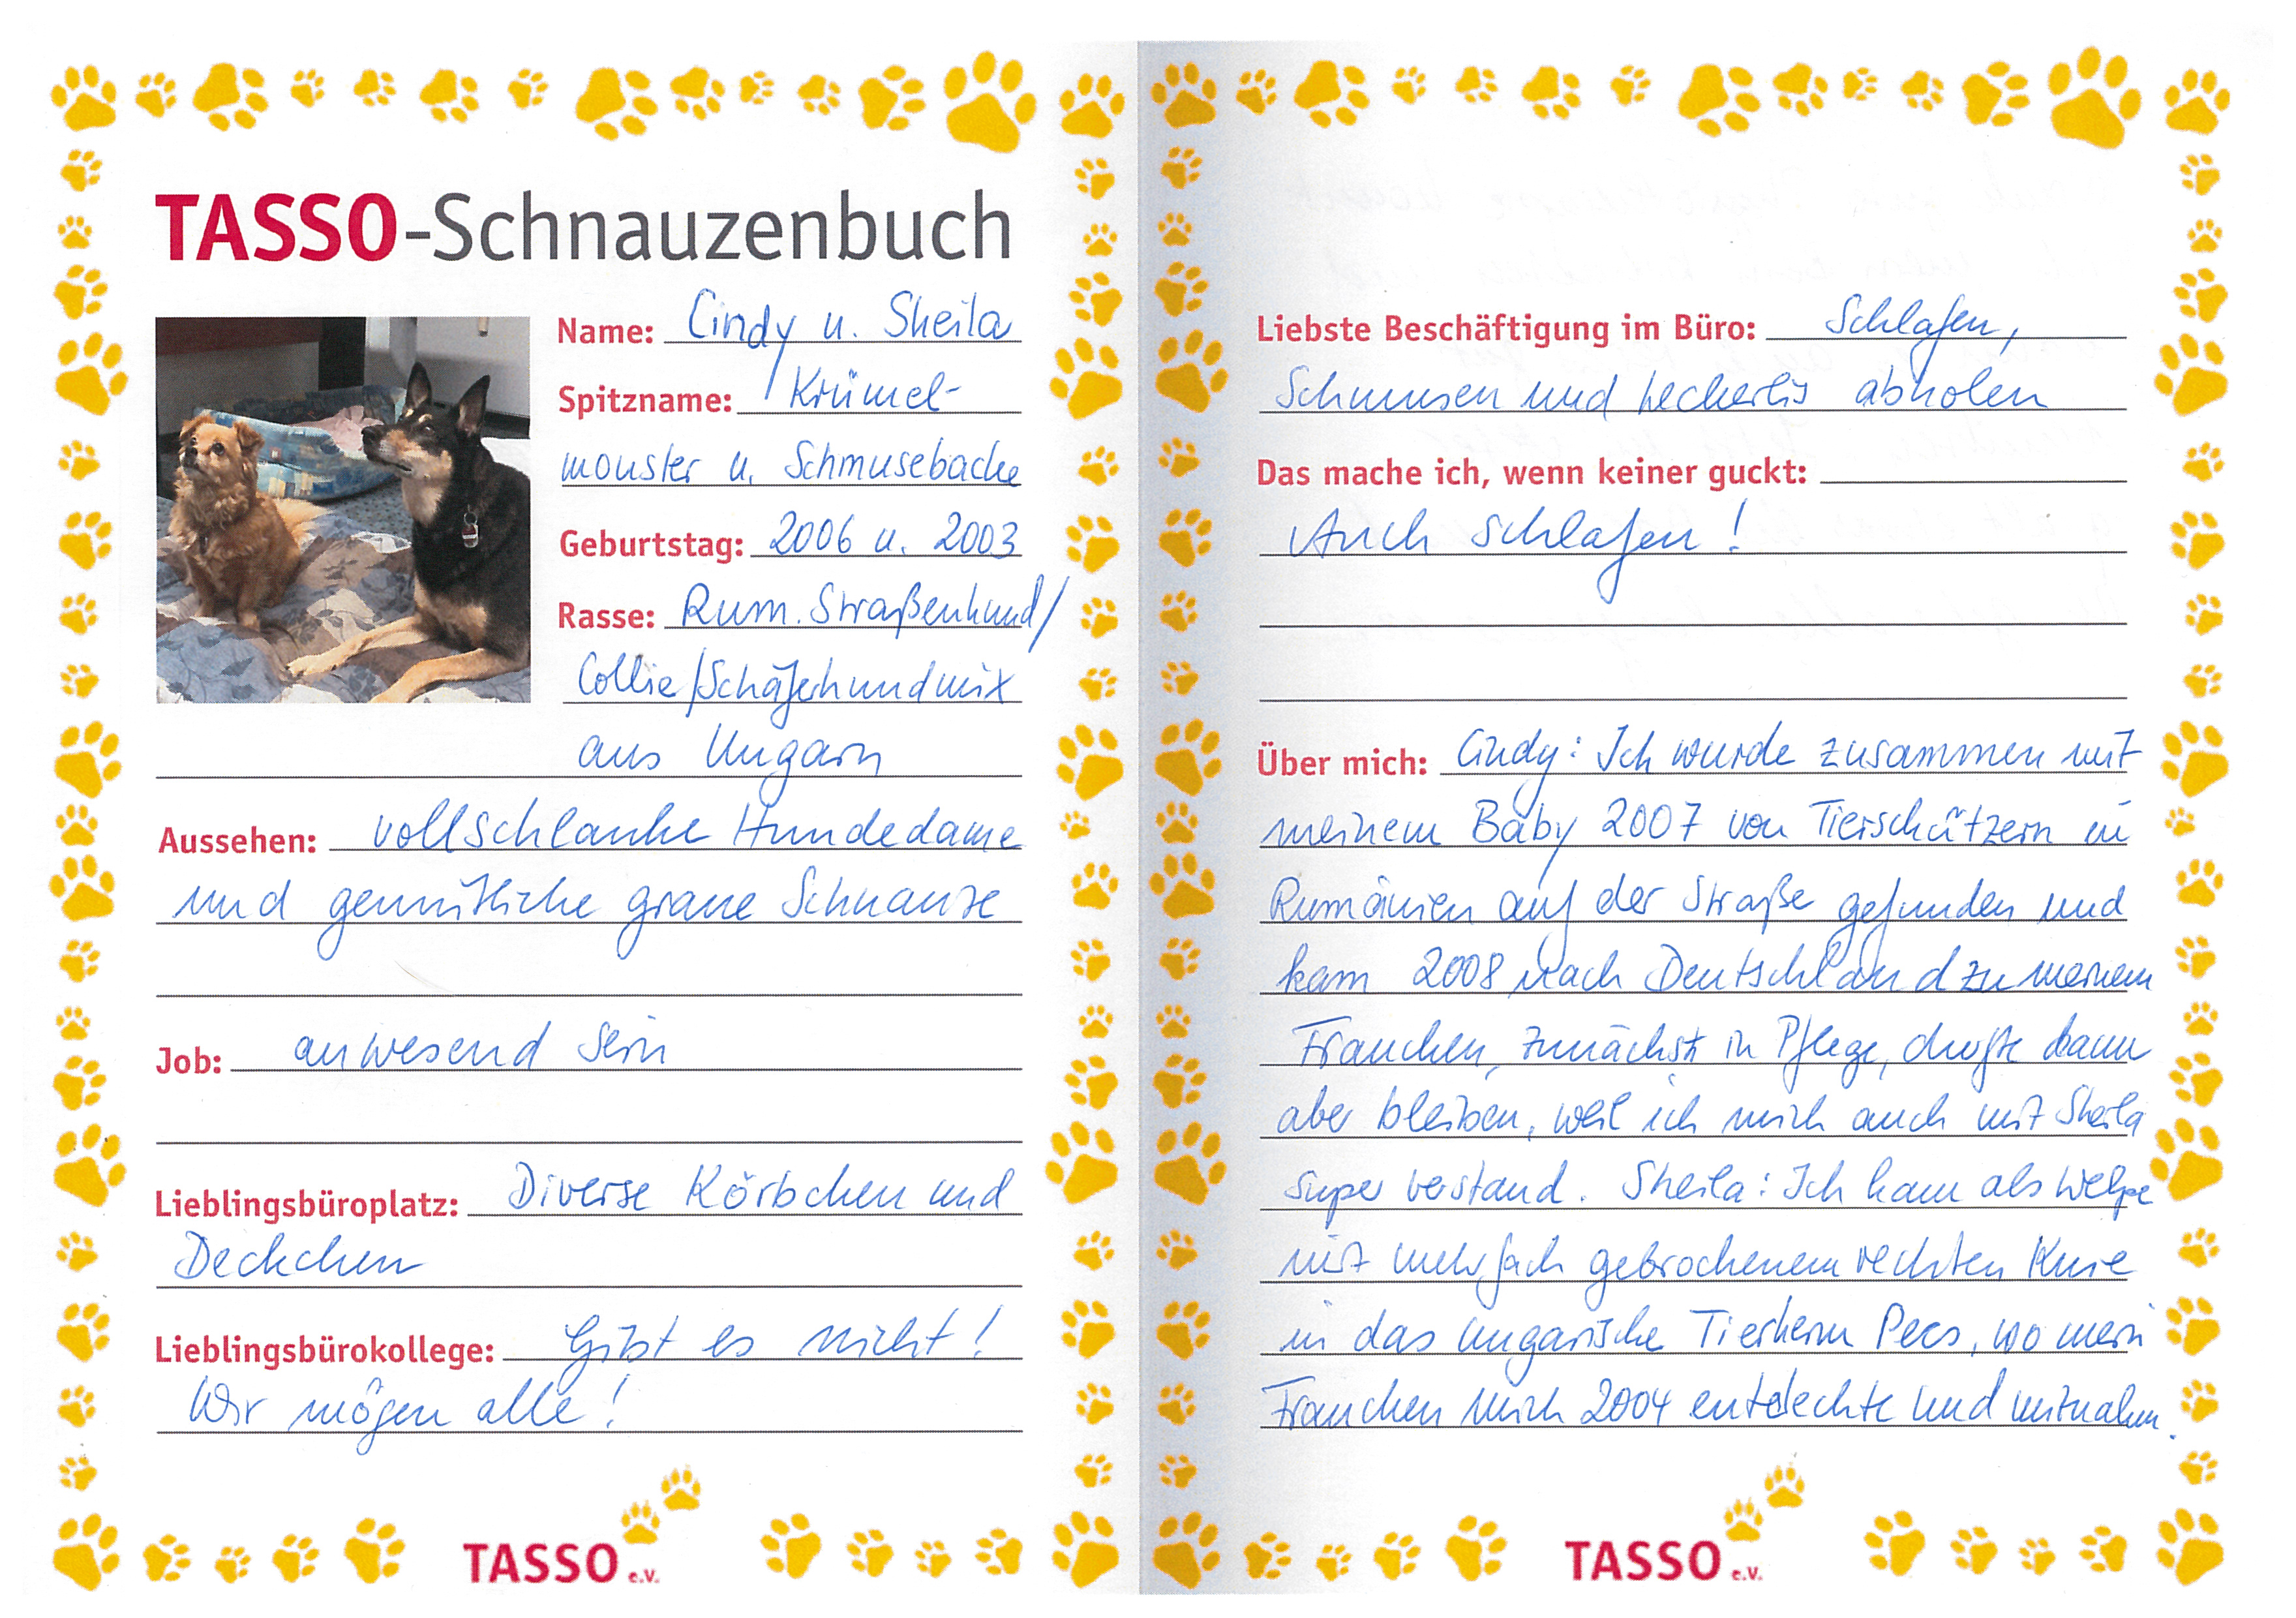 TASSO-Schnauzenbuch
Name: Cindy u. Sheila
Spitzname: Krümel-
monster u. Schmusebacke
Geburtstag: 2006 u. 2003
Rasse: Rum. Straßenhund/
Collie/Schäferhundmix
aus Ungarn
Aussehen: vollschlanke Hundedame
und gemütliche graue Schnauze
Job: anwesend sein
Lieblingsbüroplatz: Diverse Körbchen und
Deckchen
Lieblingsbürokollege: Gibt es nicht!
Wir mögen alle!
TASSO e.V.
Liebste Beschäftigung im Büro: Schlafen,
Schmusen und Leckerlis abholen
Das mache ich, wenn keiner guckt:
Auch schlafen!
Über mich: Cindy: Ich wurde zusammen mit
meinem Baby 2007 von Tierschützern in
Rumänien auf der Straße gefunden und
kam 2008 nach Deutschland zu meinem
Frauchen, zunächst in Pflege, durfte dann
aber bleiben, weil ich mich auch mit Sheila
super verstand. Sheila: Ich kam als Welpe
mit mehrfach gebrochenem rechten Knie
in das ungarische Tierheim Pecs, wo mein
Frauchen mich 2004 entdeckte und mitnahm.
TASSO e.V.